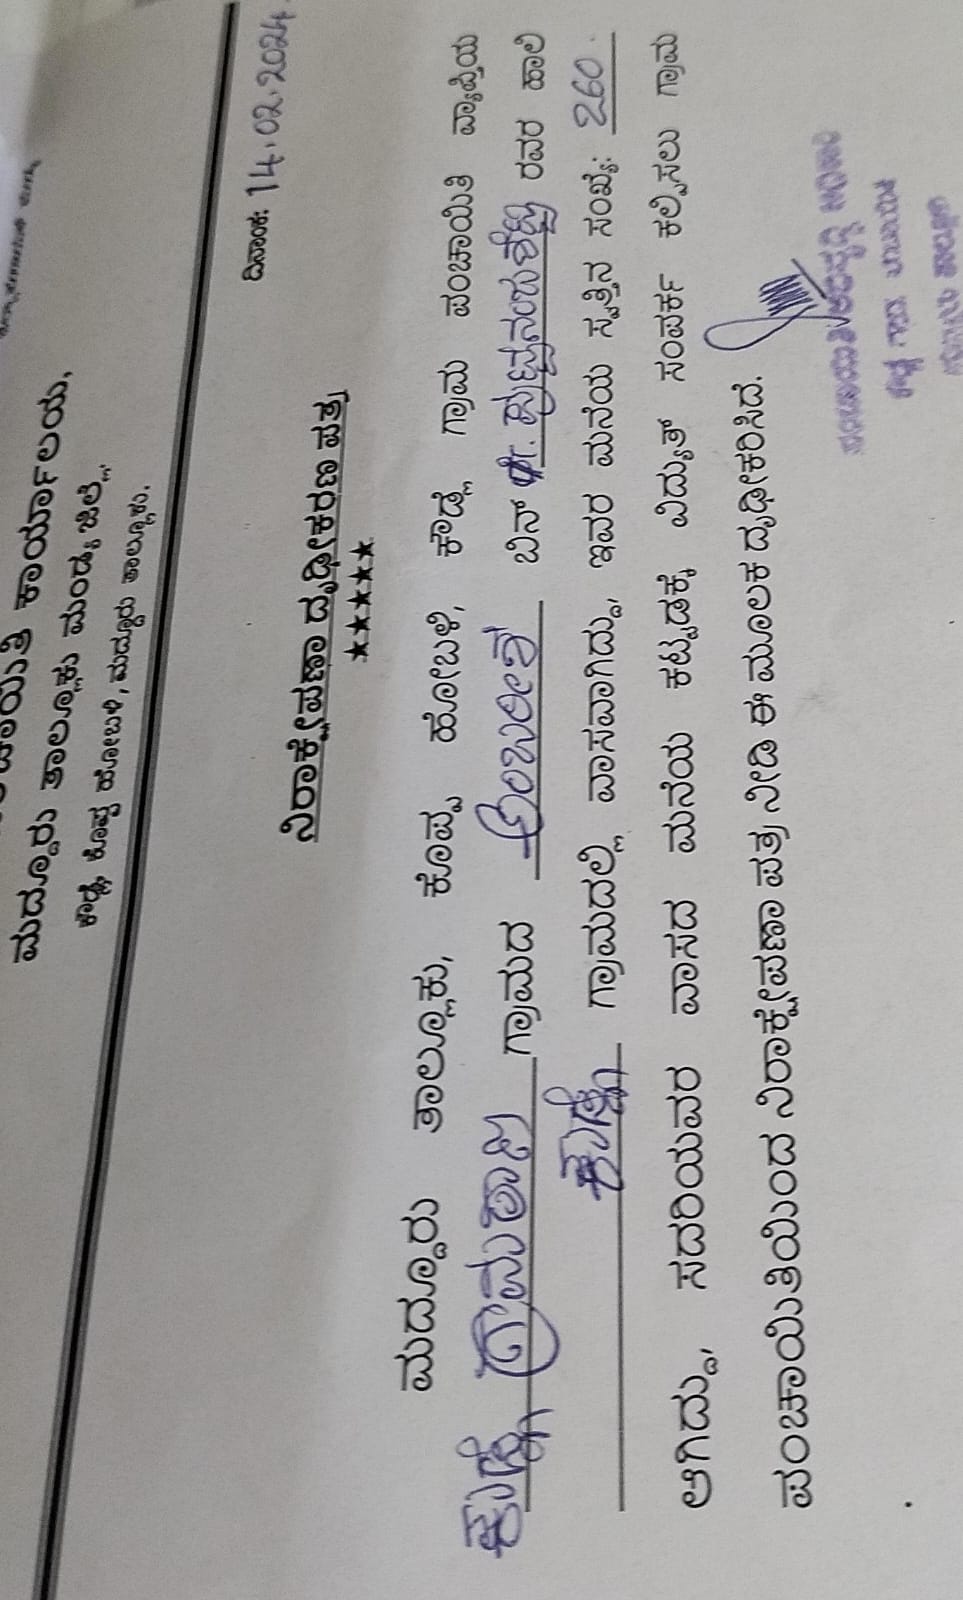 ಕಾರ್ಯಾಲಯ,
ಮದ್ದೂರು ತಾಲ್ಲೂಕು ಮಂಡ್ಯ ಜಿಲ್ಲೆ
ಕೌಡ್ಲೆ, ಕೊಪ್ಪ ಹೋಬಳಿ, ಮದ್ದೂರು ತಾಲ್ಲೂಕು.
ದಿನಾಂಕ: 14.02.2024.
ನಿರಾಕ್ಷೇಪಣಾ ದೃಢೀಕರಣ ಪತ್ರ
★★★★★
ಮದ್ದೂರು ತಾಲ್ಲೂಕು, ಕೊಪ್ಪ ಹೋಬಳಿ, ಕೌಡ್ಲೆ ಗ್ರಾಮ ಪಂಚಾಯಿತಿ ವ್ಯಾಪ್ತಿಯ
ಕೌಡ್ಲೆ ಗ್ರಾಮದ ಅಂಬರೀಶ ಬಿನ್ ರವರ ಹಾಲಿ
ಕೌಡ್ಲೆ ಗ್ರಾಮದಲ್ಲಿ ವಾಸವಾಗಿದ್ದು, ಇವರ ಮನೆಯ ಸ್ವತ್ತಿನ ಸಂಖ್ಯೆ: 260.
ಆಗಿದ್ದು, ಸದರಿಯವರ ವಾಸದ ಮನೆಯ ಕಟ್ಟಡಕ್ಕೆ ವಿದ್ಯುತ್ ಸಂಪರ್ಕ ಕಲ್ಪಿಸಲು ಗ್ರಾಮ
ಪಂಚಾಯಿತಿಯಿಂದ ನಿರಾಕ್ಷೇಪಣಾ ಪತ್ರ ನೀಡಿ ಈ ಮೂಲಕ ದೃಢೀಕರಿಸಿದೆ.